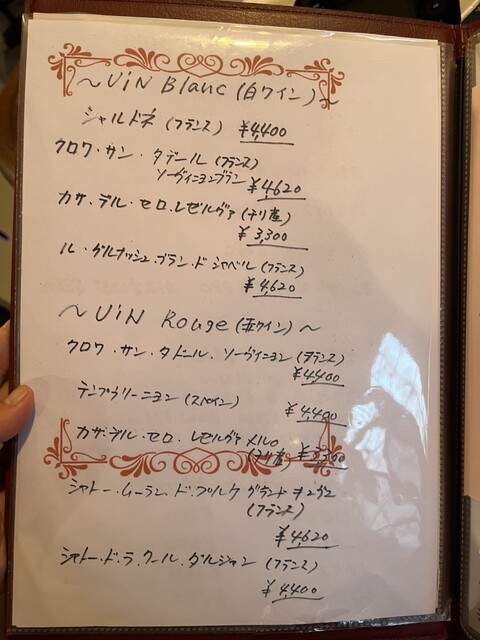 ～ViN Blanc (白ワイン)～
シャルドネ (フランス) ¥4,400
クロワ・サン・タデール (フランス)
ソーヴィニヨンブラン ¥4,620
カサ・デル・セロ・レゼルヴァ (チリ産)
¥3,300
ル・グルナッシュ・ブラン・ド・シャベル (フランス)
¥4,620
～ViN Rouge (赤ワイン)～
クロワ・サン・タドール・ソーヴィニヨン (フランス)
¥4,400
テンプラリーニョン (スペイン)
¥4,400
カサ・デル・セロ・レゼルヴァ メルロ
(チリ産) ¥3,300
シャトー・ムーラン・ド・ブルケ グランド
(フランス)
¥4,620
シャトー・ド・ラ・クール・ダルジャン (フランス)
¥4,400